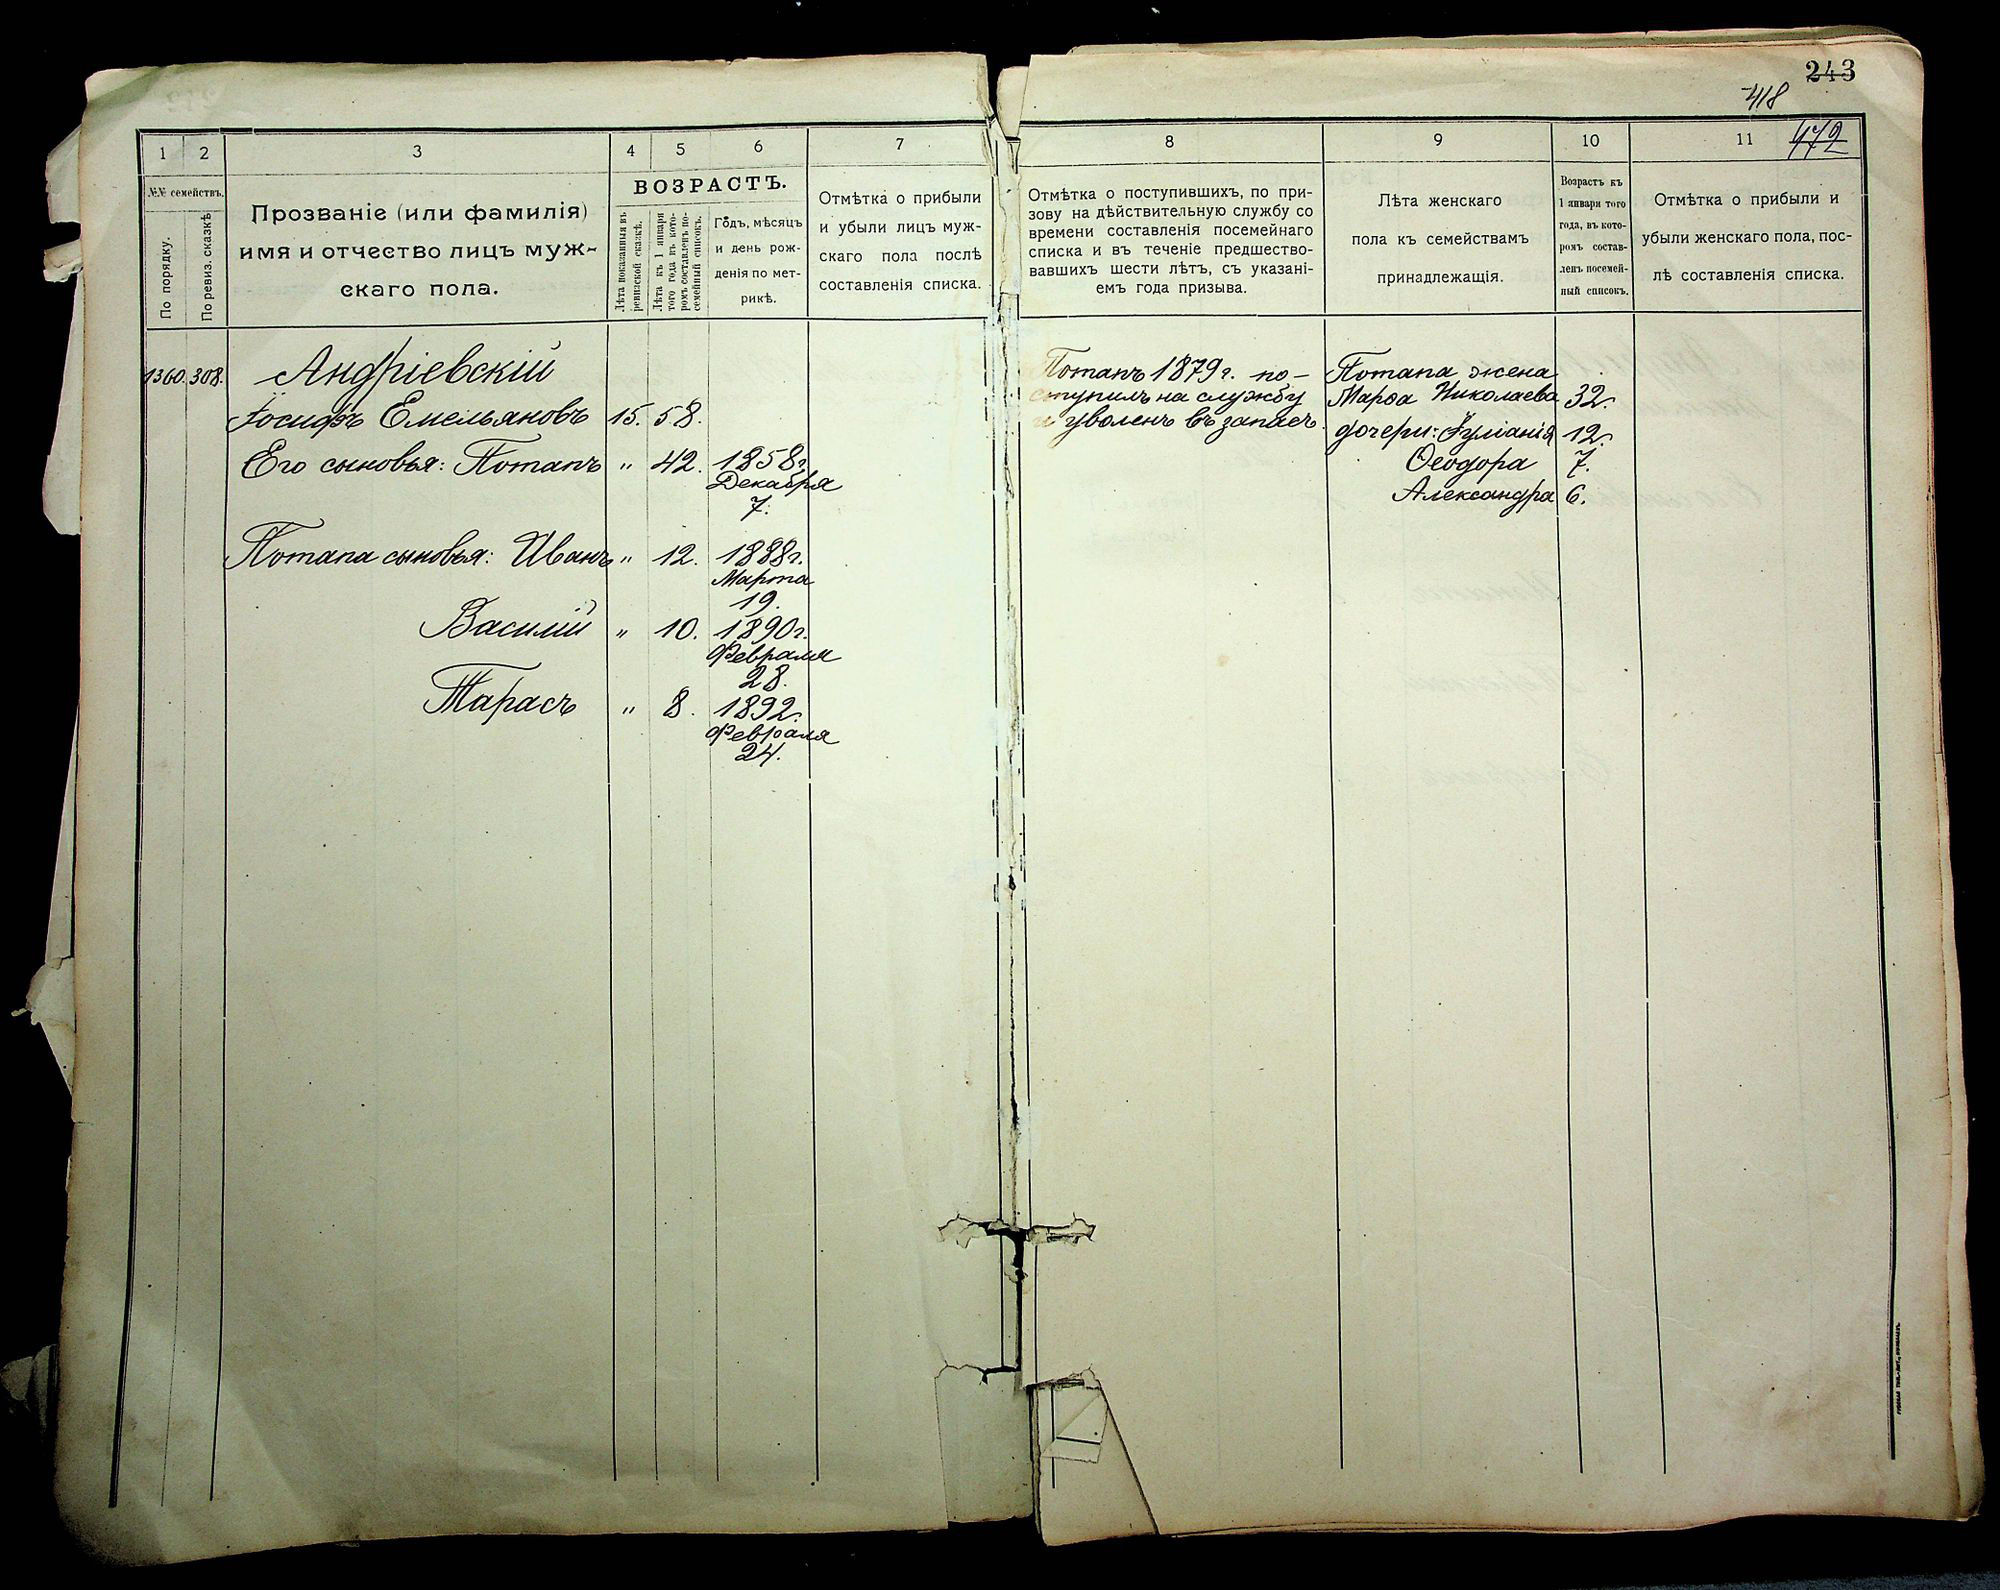 243
418
472
1 2 3 4 5 6 7 8 9 10 11
№№ семействъ.
По порядку.
По ревиз. сказкѣ
Прозваніе (или фамилія)
имя и отчество лицъ муж-
скаго пола.
ВОЗРАСТЪ.
Лѣта показанныя въ
ревизской сказкѣ.
Лѣта къ 1 января
того года въ кото-
ромъ составленъ по-
семейный списокъ.
Годъ, мѣсяцъ
и день рож-
денія по мет-
рикѣ.
Отмѣтка о прибыли
и убыли лицъ муж-
скаго пола послѣ
составленія списка.
Отмѣтка о поступившихъ, по при-
зову на дѣйствительную службу со
времени составленія посемейнаго
списка и въ теченіе предшество-
вавшихъ шести лѣтъ, съ указані-
емъ года призыва.
Лѣта женскаго
пола къ семействамъ
принадлежащія.
Возрастъ къ
1 января того
года, въ кото-
ромъ состав-
ленъ посемей-
ный списокъ.
Отмѣтка о прибыли и
убыли женскаго пола, пос-
лѣ составленія списка.
1360. 308. Андріевскій
Іосифъ Емельяновъ 15. 58.
Его сыновья: Потапъ " 42. 1858г.
Декабря
7.
Потапа сыновья: Иванъ " 12. 1888г.
Марта
19.
Василій " 10. 1890г.
Февраля
28.
Тарасъ " 8. 1892.
Февраля
24.
Потапъ 1879г. по-
ступилъ на службу
и уволенъ въ запасъ.
Потапа жена
Марѳа Николаева 32.
дочери: Іуліанія 12.
Ѳеодора 7.
Александра 6.